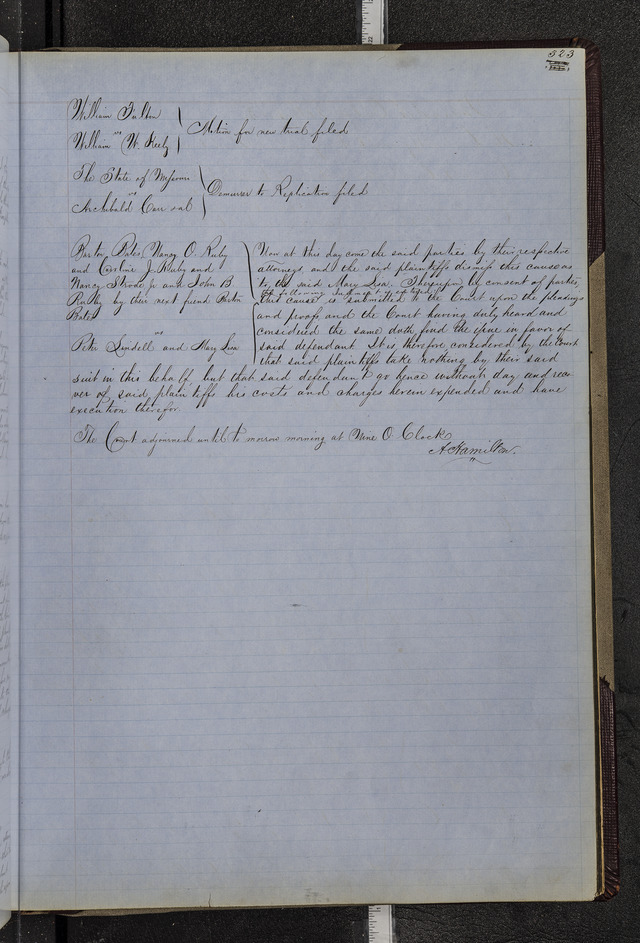 323
William Fulton
vs
William W. Keely
Motion for new trial filed
The State of Missouri
vs
Archibald Carr et al
Demurrer to Replication filed
Barton Bates, Nancy O. Ruby
and Caroline J. Ruby and
Nancy Strode jr and John B.
Ruby by their next friend Barton
Bates
vs
Peter Lindell and Mary Lisa
Now at this day come the said parties by their respective
attorneys, and the said plaintiffs dismiss this cause as
to the said Mary Lisa. Thereupon by consent of parties,
the following
this cause is submitted to the Court upon the pleadings
and proofs and the Court having duly heard and
considered the same doth find the issue in favor of
said defendant. It is, therefore, considered by the Court
that said plaintiffs take nothing by their said
suit in this behalf, but that said defendant go hence without day and reco
ver of said plaintiffs his costs and charges herein expended and have
execution therefor.
The Court adjourned until to morrow morning at Nine O. Clock
A Hamilton.